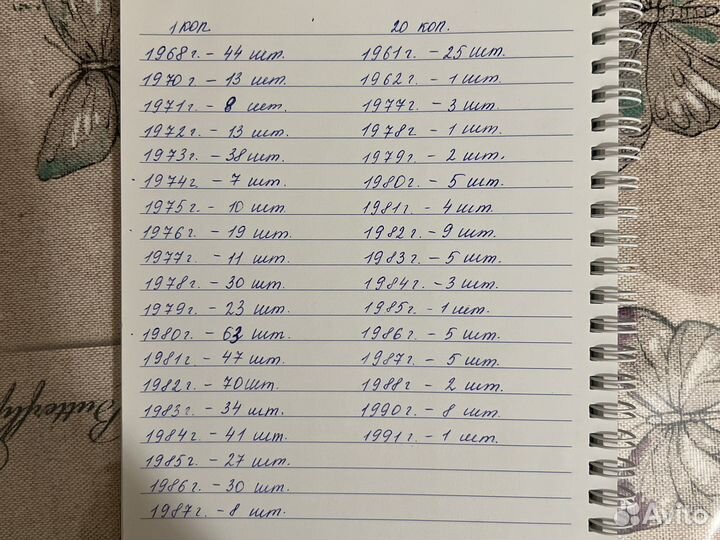 1 коп.
1968г. - 44 шт.
1970г. - 13 шт.
1971г. - 8 шт.
1972г. - 13 шт.
1973г. - 38 шт.
1974г. - 7 шт.
1975г. - 10 шт.
1976г. - 19 шт.
1977г. - 11 шт.
1978г. - 30 шт.
1979г. - 23 шт.
1980г. - 63 шт.
1981г. - 47 шт.
1982г. - 70 шт.
1983г. - 34 шт.
1984г. - 41 шт.
1985г. - 27 шт.
1986г. - 30 шт.
1987г. - 8 шт.
20 коп.
1961г. - 25 шт.
1962г. - 1 шт.
1977г. - 3 шт.
1978г. - 1 шт.
1979г. - 2 шт.
1980г. - 5 шт.
1981г. - 4 шт.
1982г. - 9 шт.
1983г. - 5 шт.
1984г. - 3 шт.
1985г. - 1 шт.
1986г. - 5 шт.
1987г. - 5 шт.
1988г. - 2 шт.
1990г. - 8 шт.
1991г. - 1 шт.
Butterfly
Avito